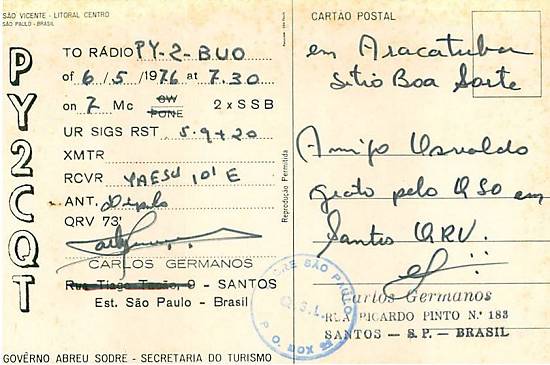 SÃO VICENTE - LITORAL CENTRO
SÃO PAULO - BRASIL
PY2CQT
TO RÁDIO PY-2-BUO
of 6/5/1976 at 7.30
on 7 Mc CW PONE 2 x SSB
UR SIGS RST 5.9+20
XMTR
RCVR YAESU 101 E
ANT. Dipolo
QRV 73'
CARLOS GERMANOS
Rua Tiago 9 - SANTOS
Est. São Paulo - Brasil
GOVÊRNO ABREU SODRE - SECRETARIA DO TURISMO
Reprodução Permitida
CARTÃO POSTAL
em Aracatuba
sitio Boa Sorte
Amigo Osvaldo
grato pelo QSO em
Santos QRV.
Carlos Germanos
RUA RICARDO PINTO N.º 183
SANTOS - S.P. - BRASIL
SÃO PAULO
Q.S.L.
P.O. BOX 22